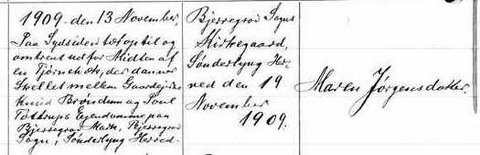 1909. den 13 November,
Paa Sydsiden tæt op til og
omtrent ud for Midten af
en Tjørnehæk, der danner
Skellet mellem Gaardejer
Knud Brøndum og Poul
Tøttrups Ejendomme paa
Bjerregrav Mark, Bjerregrav
Sogn, Sønderlyng Herred.
Bjerregrav Sogns
Kirkegaard,
Sønderlyng Her-
red den 19
November
1909.
Maren Jørgensdatter.